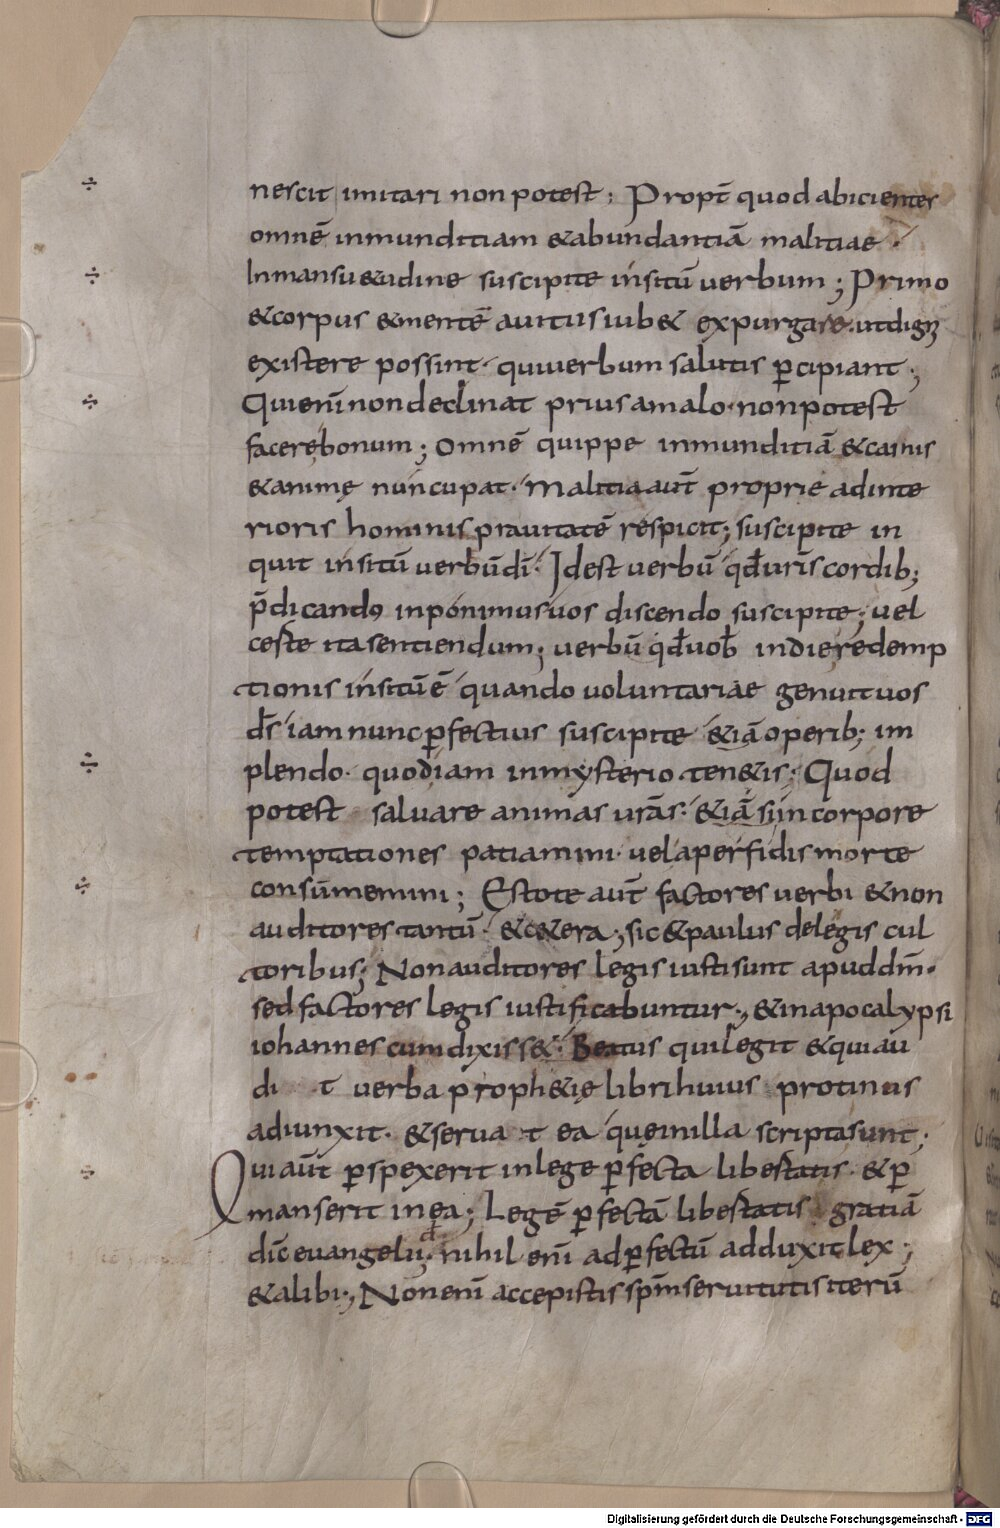 nescit imitari non potest; Propt̄ quod abicientes
omnē inmunditiam & abundantiā malitiae.
In mansu&udine suscipite insitū uerbum; Primo
& corpus & mentē a uitiis iub& expurgare. ut digni
existere possint. qui uerbum salutis p̄cipiant;
Qui enī non declinat prius a malo. non potest
facere bonum; Omnē quippe inmunditiā & carnis
& animę nuncupat. Malitia aūt proprie ad inte
rioris hominis prauitatē respicit; suscipite in
quit insitū uerbū dī. Id est uerbū qđ urīs cordib;
p̄dicando inponimus uos discendo suscipite; uel
certe ita sentiendum; uerbū qđ uob̄ in die redemp
tionis insitū ē quando uoluntariae genuit uos
ds̄ iam nunc ꝑfectius suscipite &iā operib; im
plendo. quod iam in mysterio ten&is; Quod
potest saluare animas urās. &iā si in corpore
temptationes patiamini. uel a perfidis morte
consūmemini; Estote aūt factores uerbi & non
auditores tantū. & c&era; sic & paulus de legis cul
toribus; Non auditores legis iusti sunt apud dm̄.
sed factores legis iustificabuntur; & in apocalypsi
iohannes cum dixiss&. Beatus qui legit & qui au
di t uerba proph&ię libri huius protinus
adiunxit. & serua t ea que in illa scripta sunt;
Qui aūt ꝑspexerit in lege ꝑfecta libertatis. & ꝑ
manserit in ea; Legē ꝑfectā libertatis gratiā
dic̄ euangelii. nihil enī ad ꝑfectū adduxit lex;
& alibi; Non enī accepistis spm̄ seruitutis iterū
Digitalisierung gefördert durch die Deutsche Forschungsgemeinschaft - DFG